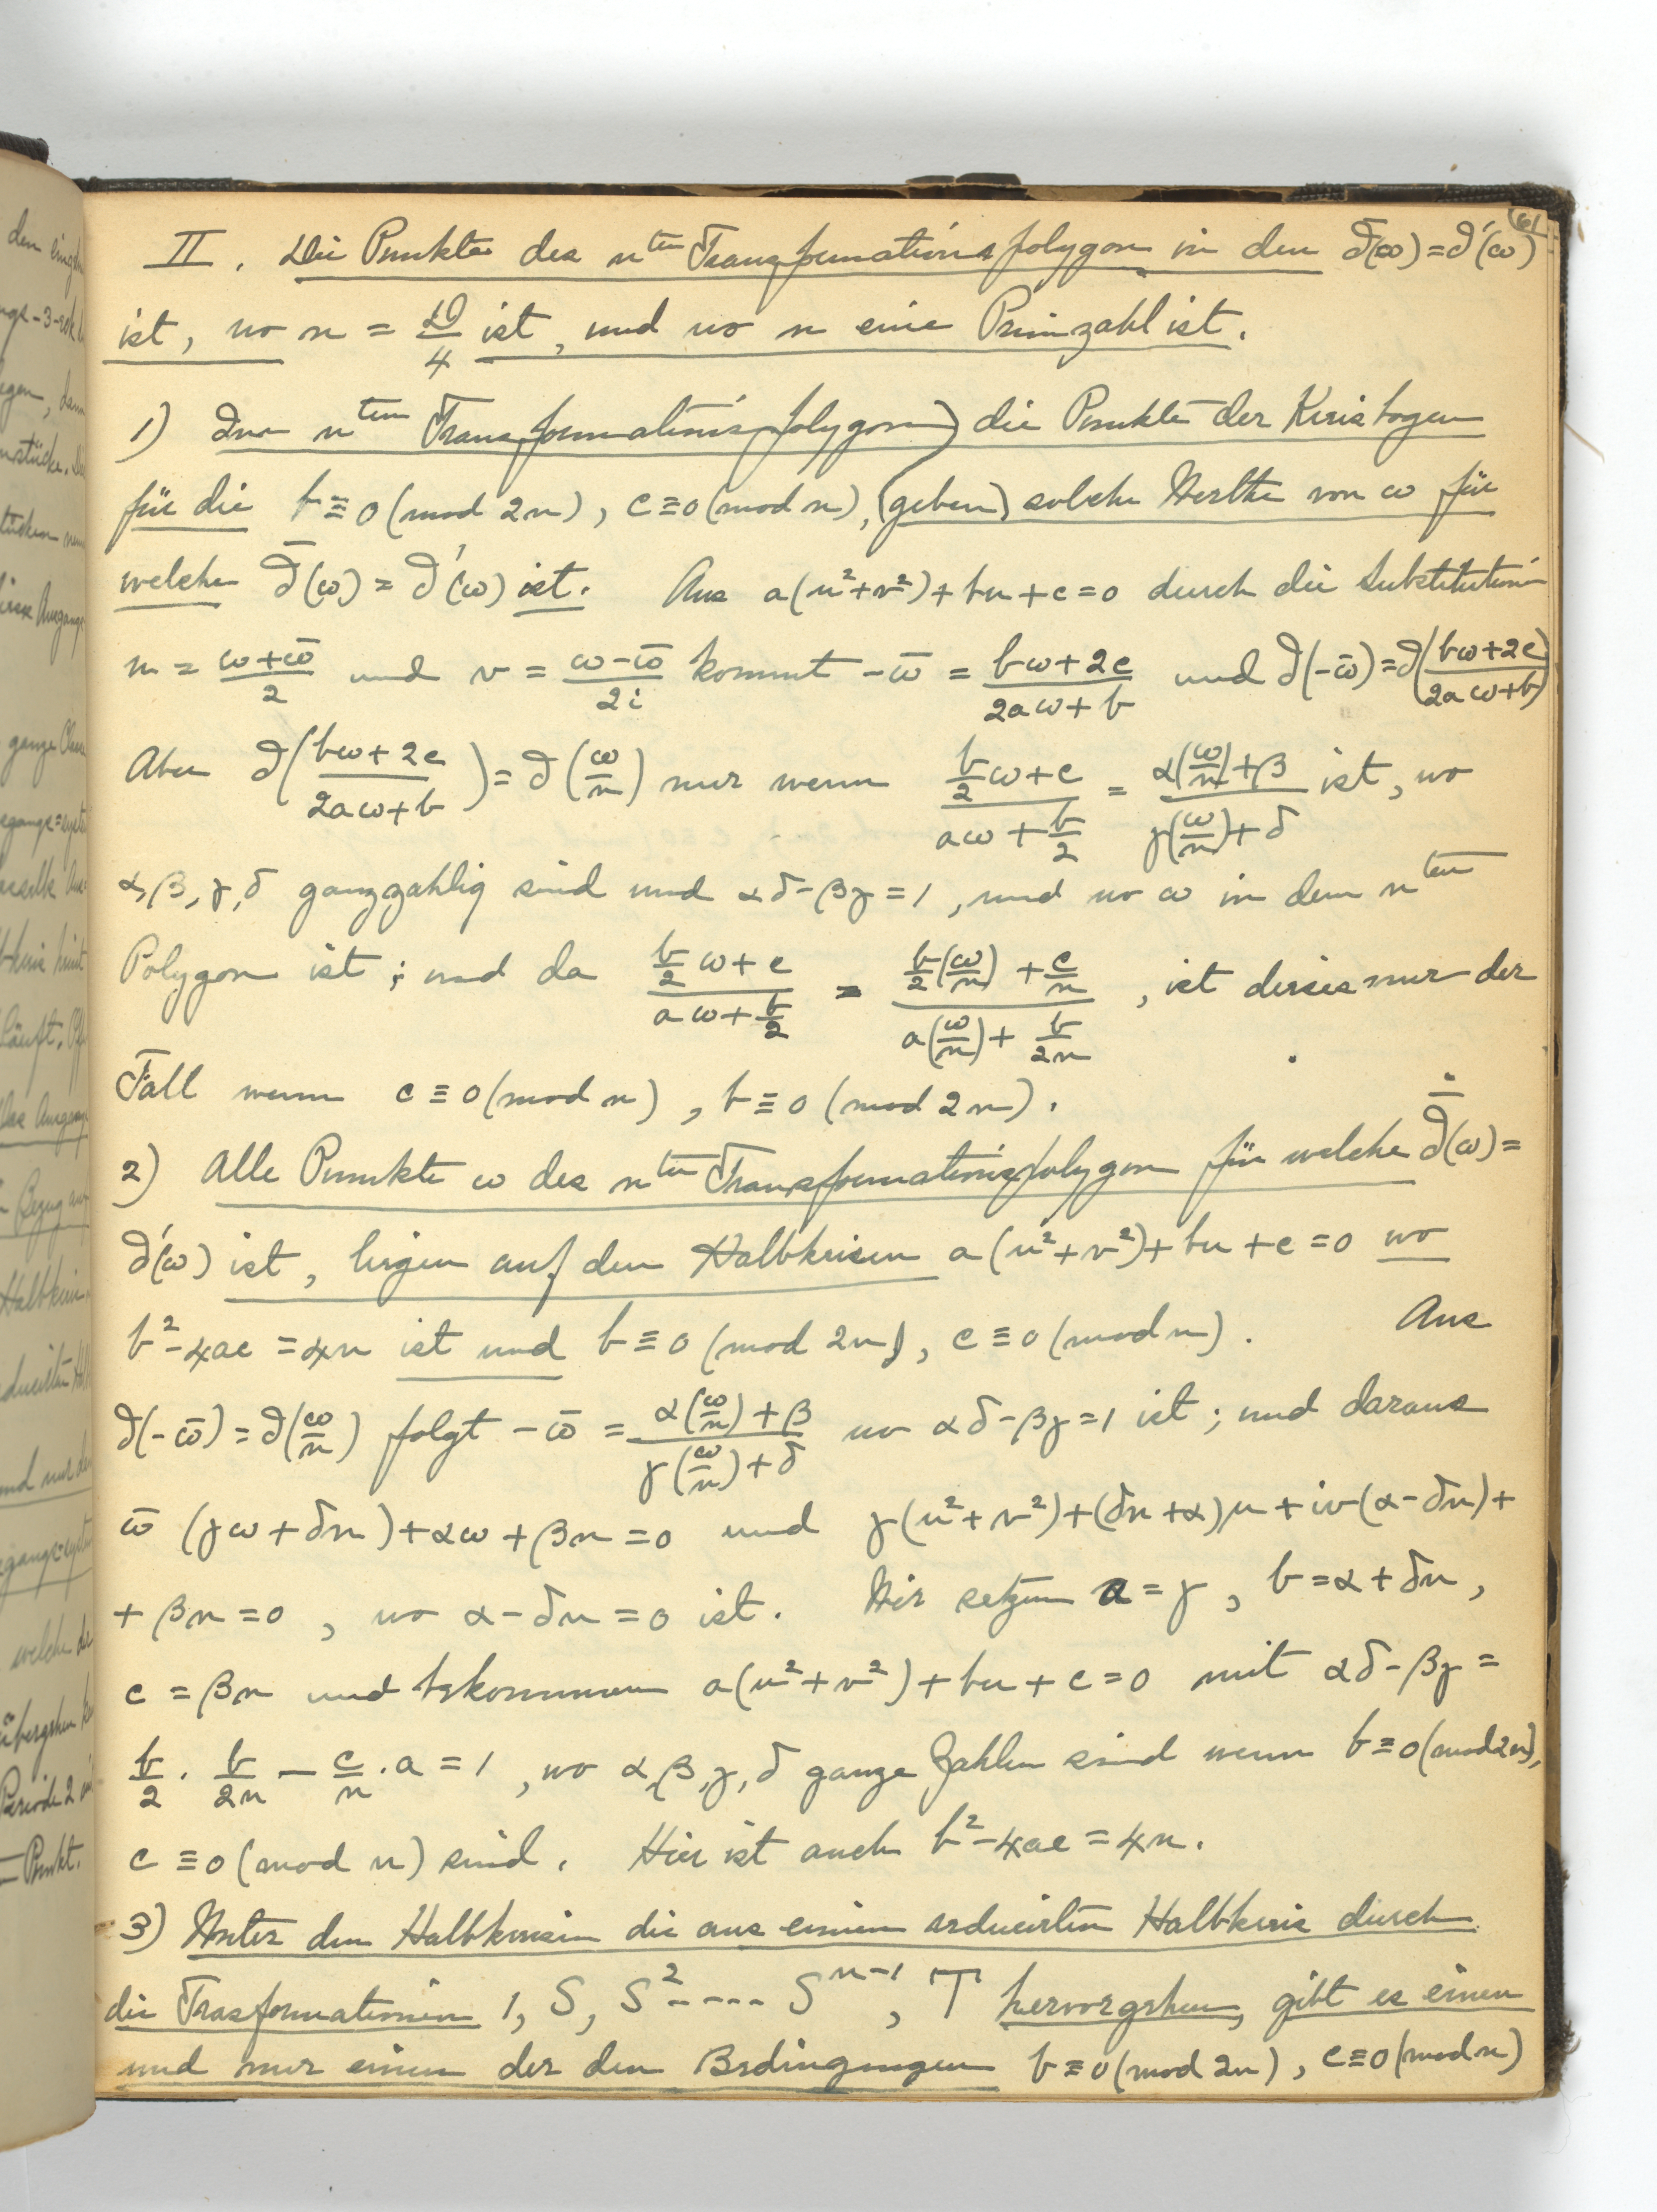 61
II. Die Punkte des n^ten Transformationspolygon in den ∂̄(ω)=∂'(ω)
ist, wo n = D/4 ist, und wo n eine Primzahl ist.
1) Im n^ten Transformationspolygon) die Punkte der Kreisbogen
für die b≡0(mod 2n), c≡0(mod n), (geben) solche Werthe von ω für
welche ∂̄(ω) = ∂'(ω) ist. Aus a(u²+v²)+bu+c=0 durch die Substitution
u = (ω+ω̄)/2 und v = (ω-ω̄)/2i kommt -ω̄ = (bω+2c)/(2aω+b) und ∂(-ω̄)=∂((bω+2c)/(2aω+b))
Aber ∂((bω+2c)/(2aω+b)) = ∂(ω/n) nur wenn (b/2 ω+c)/(aω+b/2) = (α(ω/n)+β)/(γ(ω/n)+δ) ist, wo
α,β,γ,δ ganzzahlig sind und αδ-βγ=1, und wo ω in dem n^ten
Polygon ist; und da (b/2 ω+c)/(aω+b/2) = (b/2(ω/n)+c/n)/(a(ω/n)+b/2n), ist dieses nur der
Fall wenn c≡0(mod n), b≡0(mod 2n).
2) Alle Punkte ω des n^ten Transformationspolygon für welche ∂̄(ω)=
∂'(ω) ist, liegen auf den Halbkreisen a(u²+v²)+bu+c=0 wo
b²-4ac=4n ist und b≡0(mod 2n), c≡0(mod n). Aus
∂(-ω̄)=∂(ω/n) folgt -ω̄ = (α(ω/n)+β)/(γ(ω/n)+δ) wo αδ-βγ=1 ist; und daraus
ω̄(γω+δn)+αω+βn=0 und γ(u²+v²)+(δn+α)u+iv(α-δn)+
+βn=0, wo α-δn=0 ist. Wir setzen a=γ, b=α+δn,
c=βn und bekommen a(u²+v²)+bu+c=0 mit αδ-βγ=
b/2 · b/2n - c/n · a = 1, wo α,β,γ,δ ganze Zahlen sind wenn b≡0(mod 2n),
c≡0(mod n) sind. Hier ist auch b²-4ac=4n.
3) Unter den Halbkreisen die aus einem reducirten Halbkreis durch
die Trasformationen 1, S, S²---- S^n-1, T hervorgehen, gibt es einen
und nur einen der den Bedingungen b≡0(mod 2n), c≡0(mod n)